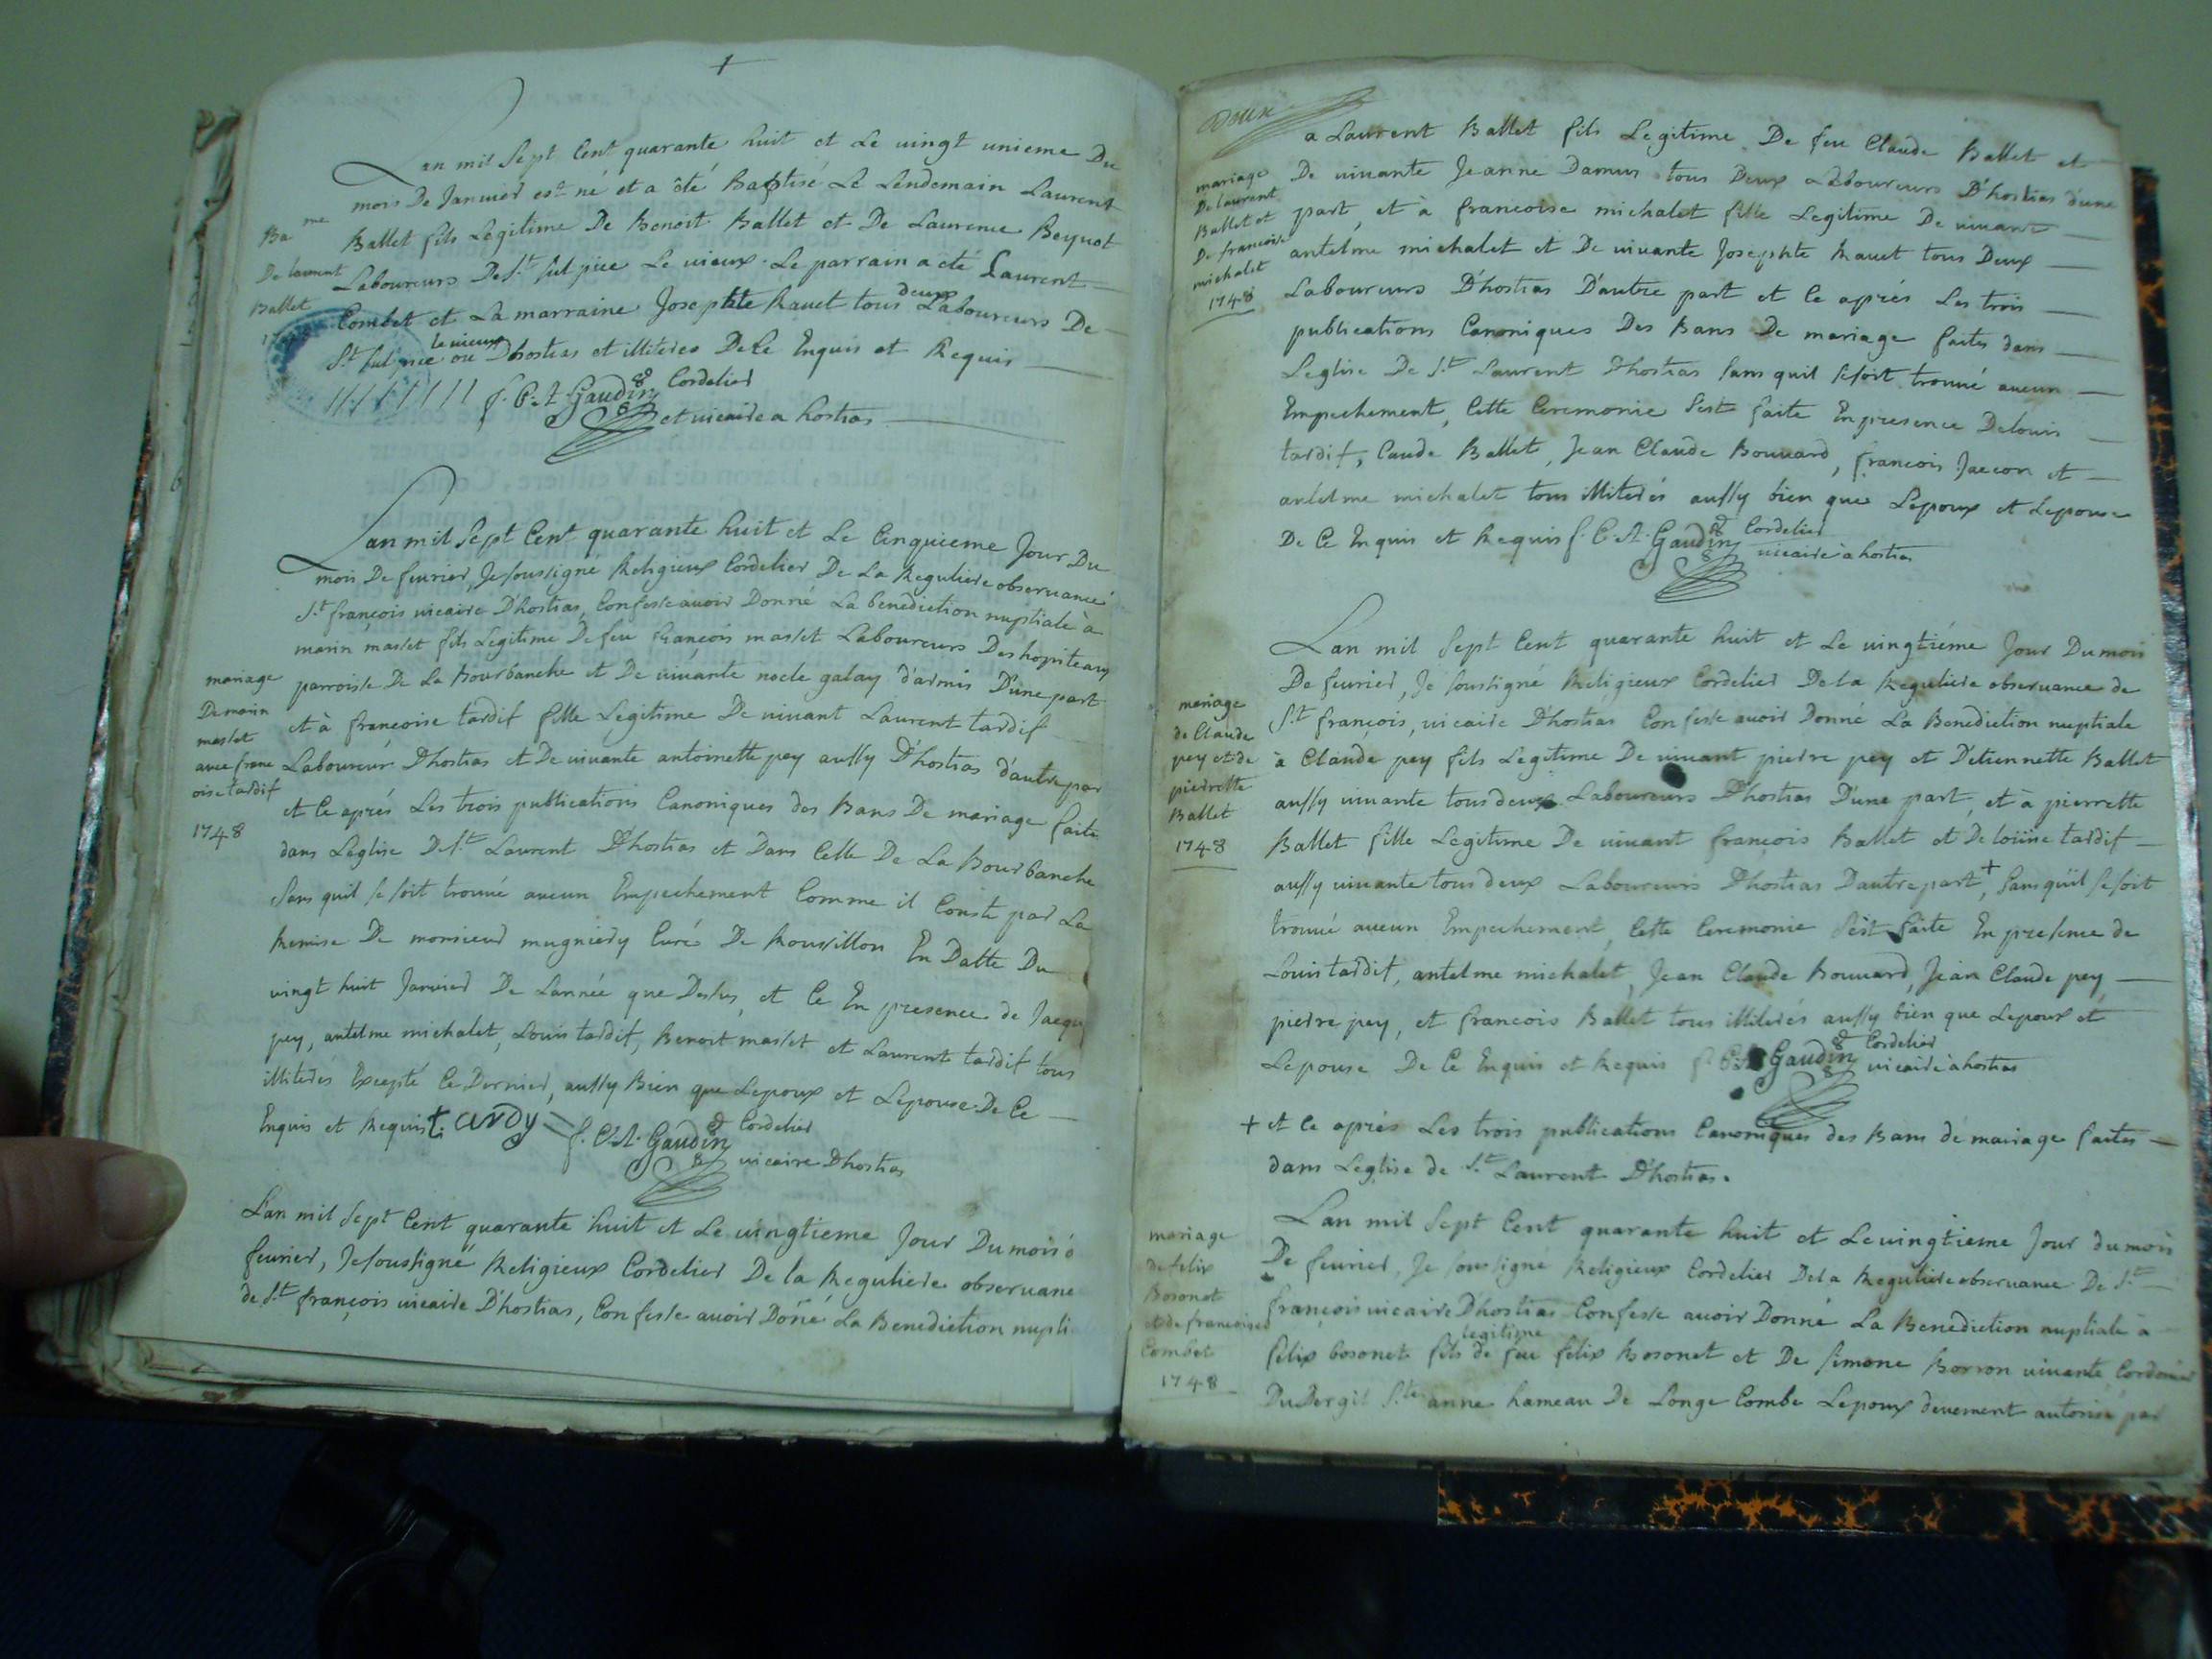 Lan mil Sept Cent quarante huit et Le vingt unieme Du
mois De Janvier est né et a été Baptisé Le Lendemain Laurent
Ballet fils Legitime De Benoit Ballet et De Laurence Beynot
Laboureurs De St Sulpice Le vieux. Le parrain a été Laurent
Combet et La marraine Josephte Ravet tous deux Laboureurs De
St Sulpice le vieux ou Dhostias et illiterés De Ce Enquis et Requis
f. C. A. Gaudin Cordelier
et vicaire a hostias
Ba me
De laurent
Ballet
Lan mil Sept Cent quarante huit et Le Cinquieme Jour Du
mois De fevrier, Je soussigné Religieux Cordelier De La Reguliere observance
St françois vicaire D'hostias, Confesse avoir Donné La benediction nuptiale à
marin masset fils Legitime De feu françois masset Laboureurs Des hopiteaux
parroisse De La Bourbanche et De vivante noele galay d'armis D'une part
et à françoise tardif fille Legitime De vivant Laurent tardif
Laboureur Dhostias et De vivante antoinette pey aussy D'hostias d'autre par
et Ce aprés Les trois publications Canoniques des Bans De mariage faite
dans Leglise De St Laurent D'hostias et Dans Celle De La Bourbanche
Sans quil se soit trouvé aucun Empechement Comme il Conste par La
Remise De monsieur mugniery Curé De Rousillon En Datte Du
vingt huit Janvier De Lannée que Dessus, et Ce En presence de Jacqu
pey, antelme michalet, Louis tardif, Benoit masset et Laurent tardif tous
illiterés Excepté Ce Dernier, aussy Bien que Lepoux et Lepouse De Ce
Enquis et Requis tardy f. C. A. Gaudin Cordelier
vicaire Dhostias
mariage
De marin
masset
avec franc
oise tardif
1748
Lan mil Sept Cent quarante huit et Le vingtieme Jour Du mois
fevrier, Je soussigné Religieux Cordelier De la Reguliere observanc
de St françois vicaire D'hostias, Confesse avoir Doñé La Benediction nupti
Doux
a Laurent Ballet fils Legitime De feu Claude Ballet et
De vivante Jeanne Damus tous Deux Laboureurs D'hostias d'une
part, et à francoise michalet fille Legitime De vivant
antelme michalet et De vivante Josephte Ravet tous Deux
Laboureurs D'hostias D'autre part et Ce aprés Les trois
publications Canoniques Des Bans De mariage faites dans
Leglise De St Laurent Dhostias sans quil se soit trouvé aucun
Empechement, Cette Ceremonie Sest faite En presence De louis
tardif, Caude Ballet, Jean Claude Bouvard, francois Jaccon et
antelme michalet tous illiterés aussy bien que Lepoux et Lepouse
De Ce Enquis et Requis f. C. A. Gaudin Cordelier
vicaire à hostias
mariage
De laurent
Ballet et
De francoise
michalet
1748
Lan mil Sept Cent quarante huit et Le vingtiéme Jour Du mois
De fevrier, Je soussigné Religieux Cordelier De la Reguliere observance de
St françois, vicaire D'hostias Confesse avoir Donné La Benediction nuptiale
à Claude pey fils Legitime De vivant pierre pey et D'etiennette Ballet
aussy vivante tous deux Laboureurs D'hostias D'une part, et à pierrette
Ballet fille Legitime De vivant françois Ballet et De loüise tardif
aussy vivante tous deux Laboureurs Dhostias Dautre part +, sans quil se soit
trouvé aucun Empechement, Cette Ceremonie Sest faite En presence de
Louis tardif, antelme michalet, Jean Claude Bouvard, Jean Claude pey
pierre pey, et francois Ballet tous illiterés aussy bien que Lepoux et
Lepouse De Ce Enquis et Requis f. C. A. Gaudin Cordelier
vicaire à hostias
+ et Ce aprés Les trois publications Canoniques des Bans de mariage faites
dans Leglise de St Laurent D'hostias.
mariage
de Claude
pey et de
pierrette
Ballet
1748
Lan mil Sept Cent quarante huit et Le vingtieme Jour du mois
De fevrier, Je soussigné Religieux Cordelier De la Reguliere observance De St
françois vicaire Dhostias Confesse avoir Donné La Benediction nuptiale à
felix bosonet fils legitime de feu felix Bosonet et De simone Borron vivante Cordonier
Du Dergit Ste anne hameau De Longe Combe Lepoux deuement autorisé par
mariage
de felix
Bosonet
et de francoise
Combet
1748